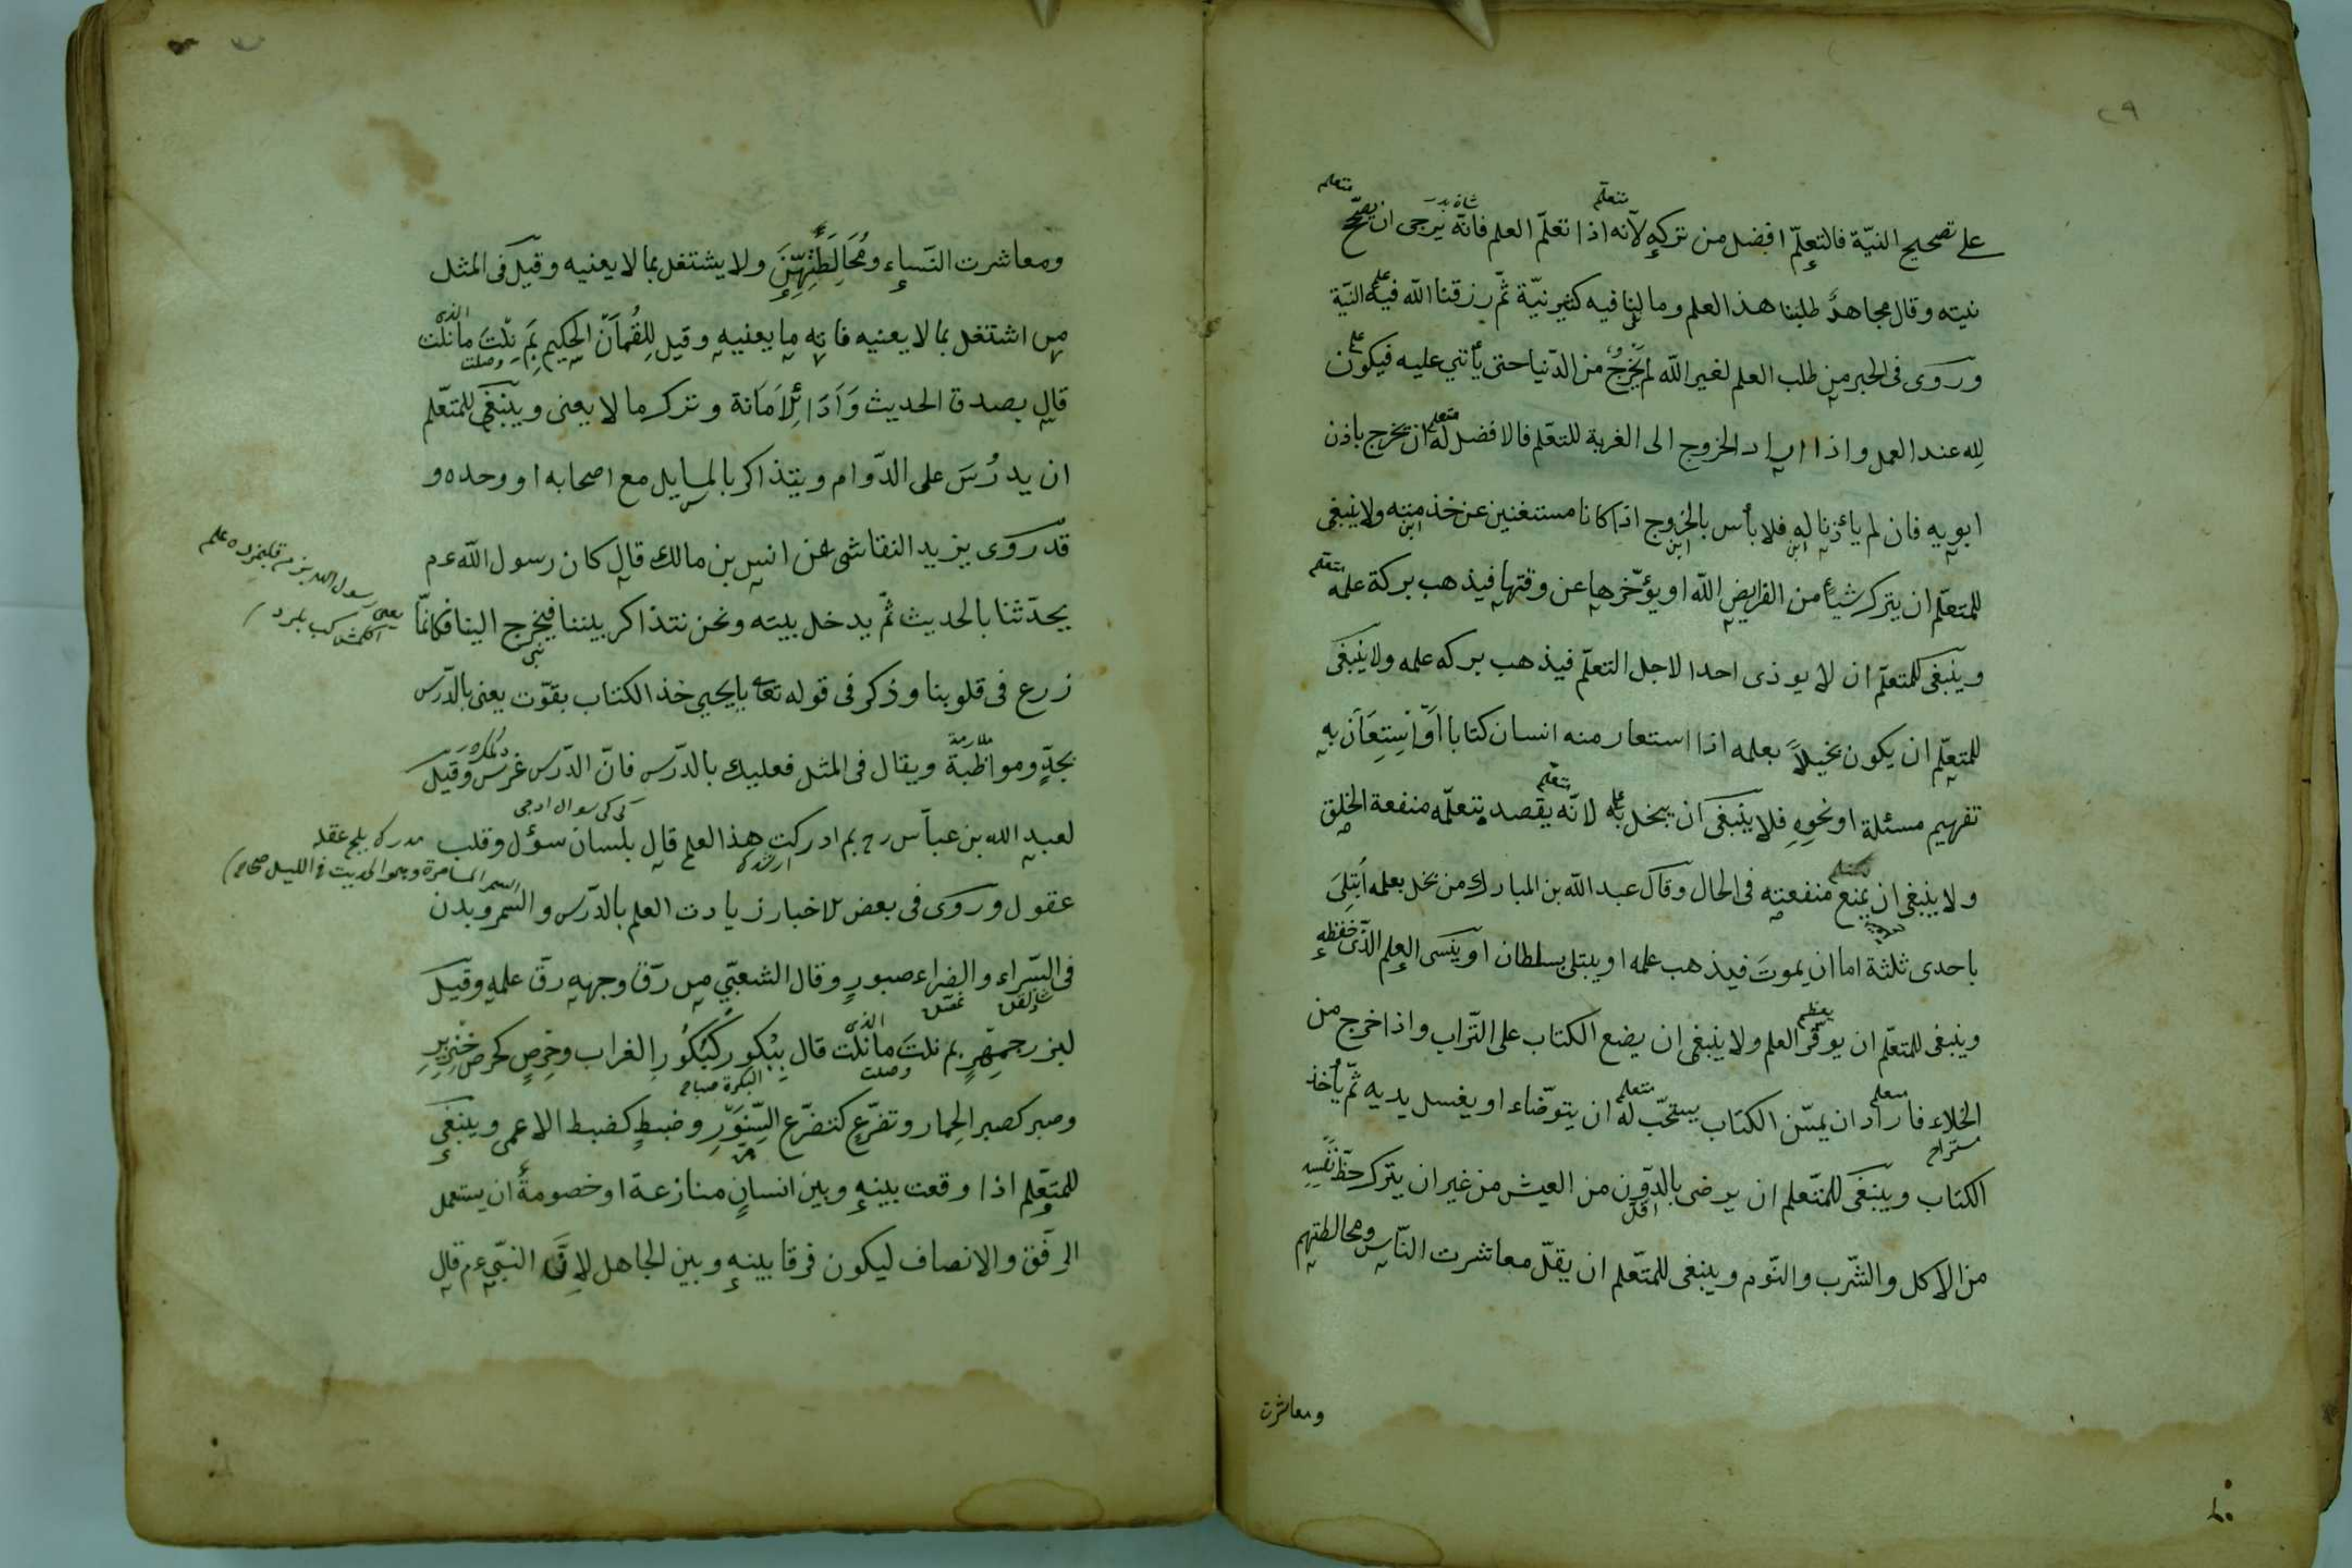 ٢٩
على تصحيح النيّة فالتعلّم افضل من تركه لأنّه اذا تعلّم العلم فانّه يرجى ان يصحّ
نيته وقال مجاهدٌ طلبنا هذ العلم وما لنا فيه كثير نيّة ثمّ رزقنا الله فيه النيّة
وروى فى الخبر من طلب العلم لغير الله لم يخرج من الدّنيا حتى يأتي عليه فيكون
لله عند العمل واذا اراد الخروج الى الغربة للتعّلم فالافضل له ان يخرج باذن
ابويه فان لم يأذنا له فلا بأس بالخروج اذا كانا مستغنين عن خدمته ولا ينبغى
للمتعلّم ان يترك شيأً من الفرايض الله او يؤخّرها عن وقتها فيذهب بركة علمه
وينبغى للمتعلّم ان لا يوذى احدا لاجل التعلّم فيذهب بركه علمه ولا ينبغى
للمتعلّم ان يكون بخيلاً بعلمه اذا استعار منه انسان كتابا اَوْ اُسْتِعَانَ به
تفهيم مسئلة او نحوه فلا ينبغى ان يبخل به لانّه يقصد بتعلّمه منفعة الخلق
ولا ينبغى ان يمنع منفعته فى الحال وقال عبد الله بن المبارك من بخل بعلمه اُبتلِىَ
باحدى ثلثة اما ان يموتَ فيذهب علمه او يبتلى بسلطان او ينسى العلم الّذى حفظه
وينبغى للمتعلّم ان يوقّر العلم ولا ينبغى ان يضع الكتاب على التّراب واذا خرج من
الخلاء فاراد ان يمسّ الكتاب يستحّب له ان يتوضّاء او يغسل يديه ثمّ يأخذ
الكتاب وينبغى للمتعلم ان يرضى بالدّون من العيش من غير ان يترك حظّ نفسه
من الاكل والشّرب والنّوم وينبغى للمتعّلم ان يقلّ معاشرت النّاس ومخالطتهم
ومعاشرت
ومعاشرت النّساء ومُخَالِطَتِهِنَّ ولا يشتغل بما لا يعنيه وقيل فى المثل
من اشتغل بما لا يعنيه فاته ما يعنيه وقيل لِلِقُمَان الحكيم بِمَ نِلْتَ ما نلت
قال بصدق الحديث وَاَدَاءِ الْاَمَانة وترك ما لا يعنى وينبغى للمتعّلم
ان يدرُسَ على الدّوام ويتذاكر بالمسايل مع اصحابه او وحده و
قد روى يزيد النقاشى عن انس بن مالك قال كان رسول الله عم
يحدّثنا بالحديث ثمّ يدخل بيته ونحن نتذاكر بيننا فيخرج الينا فكانمّا
زرع فى قلوبنا وذكر فى قوله تعا يا يحيى خذ الكتاب بقوّت يعنى بالدّرس
بجدٍّ ومواظبة ويقال فى المثل فعليك بالدّرس فانّ الدّرس غرس وقيل
لعبد الله بن عباس رح بم ادركت هذا العلم قال بلسان سؤل وقلب
عقول وروى فى بعض الاخبار زيادت العلم بالدّرس والسّمر وبدن
السمر المسامرة وهو الحديث فى الليل صحاح
فى السّراء والضراء صبورٍ وقال الشعبّي من رَقّ وجهه رقّ علمه وقيل
لبزرجمهر بم نلتَ ما نلت قال بِبُكورٍ كَبُكُورِ الغراب وحرصٍ كحرص خنزيرِ
وصبر كصبر الحِمار وتضرّع كتضرّع السِّنَوّرِ وضبطٍ كضبط الاعمى وينبغى
للمتعّلم اذا وقعت بينه وبين انسانٍ منازعة او خصومةٌ ان يستعمل
الرفق والانصاف ليكون فرقا بينه وبين الجاهل لانّ النبّي عم قال